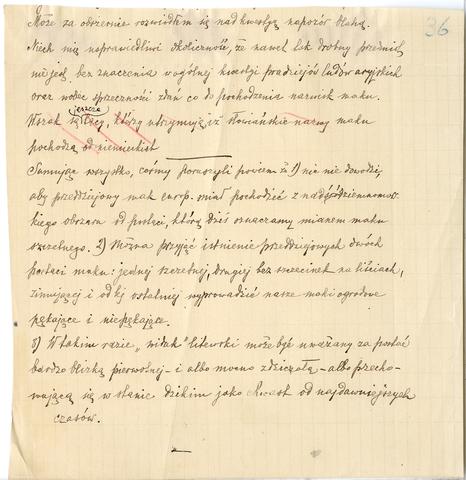 36
Może za obszernie rozwiodłem się nad kwestyą napozór błahą.
Niech mię usprawiedliwi okoliczność, że nawet tak drobny przedmiot
nie jest bez znaczenia w ogólnej kwestyi pradziejów ludów aryjskich
oraz wobec sprzeczności zdań co do pochodzenia nazwisk maku.
jeszcze
Wszak są tacy, którzy utrzymują iż słowiańskie nazwy maku
pochodzą od niemieckich
Sumując wszystko, cośmy poruszyli powiem że 1) nic nie dowodzi,
aby przeddziejowy mak europ. miał pochodzić z nadśródziemnomor-
skiego obszaru od postaci, którą dziś oznaczamy mianem maku
szczetnego. 2) Można przyjąć istnienie przeddziejowych dwóch
postaci maku: jednej szczetnej, drugiej bez szczecinek na liściach,
zimującej i od tej ostatniej wyprowadzić nasze maki ogrodowe
pękające i niepękające.
3) W takim razie „wisuk" litewski może być uważany za postać
bardzo blizką pierwotnej - i albo wtórnie zdziczałą - albo przecho-
wującą się w stanie dzikim jako chwast od najdawniejszych
czasów.